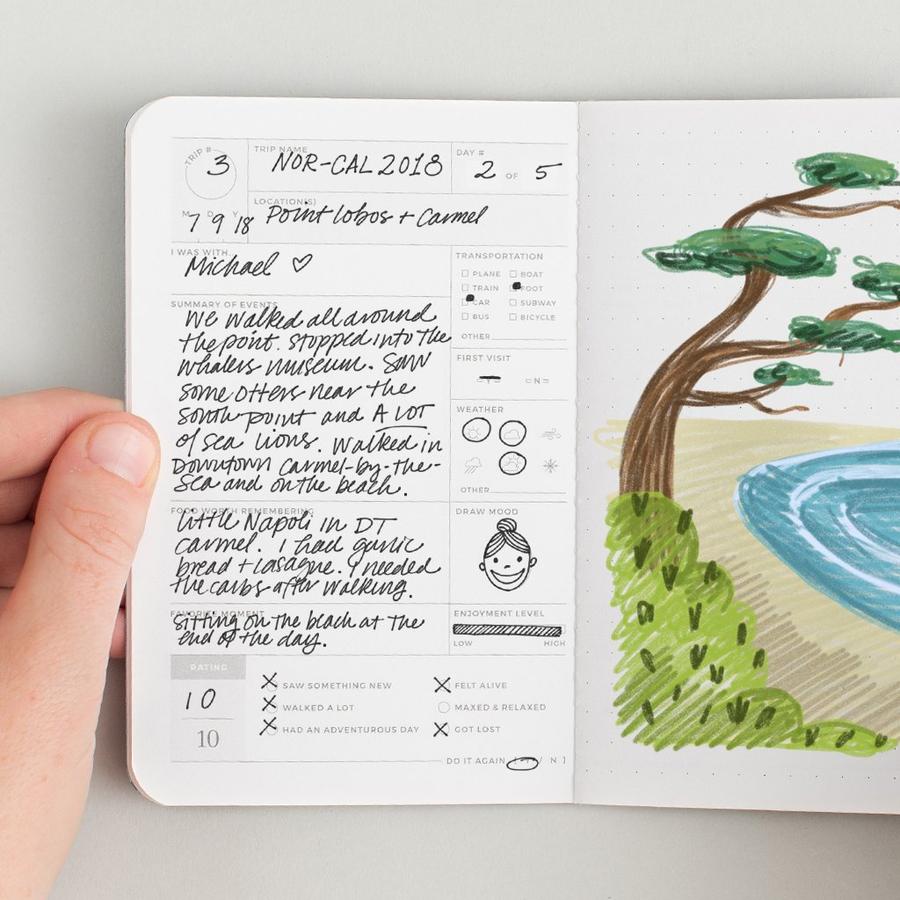 TRIP #
3
TRIP NAME
NOR-CAL 2018
DAY #
2 OF 5
M D Y
7 9 18
LOCATION(S)
Point lobos + Carmel
I WAS WITH
Michael ♡
SUMMARY OF EVENTS
We walked all around
the point. Stopped into the
whalers museum. Saw
some otters near the
south point and A LOT
of sea lions. Walked in
Downtown Carmel-by-the-
Sea and on the beach.
TRANSPORTATION
PLANE BOAT
TRAIN FOOT
CAR SUBWAY
BUS BICYCLE
OTHER
FIRST VISIT
Y N
WEATHER
OTHER
FOOD WORTH REMEMBERING
Little Napoli in DT
Carmel. I had garlic
bread + lasagne. I needed
the carbs after walking.
DRAW MOOD
FAVORITE MOMENT
Sitting on the beach at the
end of the day.
ENJOYMENT LEVEL
LOW HIGH
RATING
10
10
SAW SOMETHING NEW
WALKED A LOT
HAD AN ADVENTUROUS DAY
FELT ALIVE
MAXED & RELAXED
GOT LOST
DO IT AGAIN [ Y / N ]